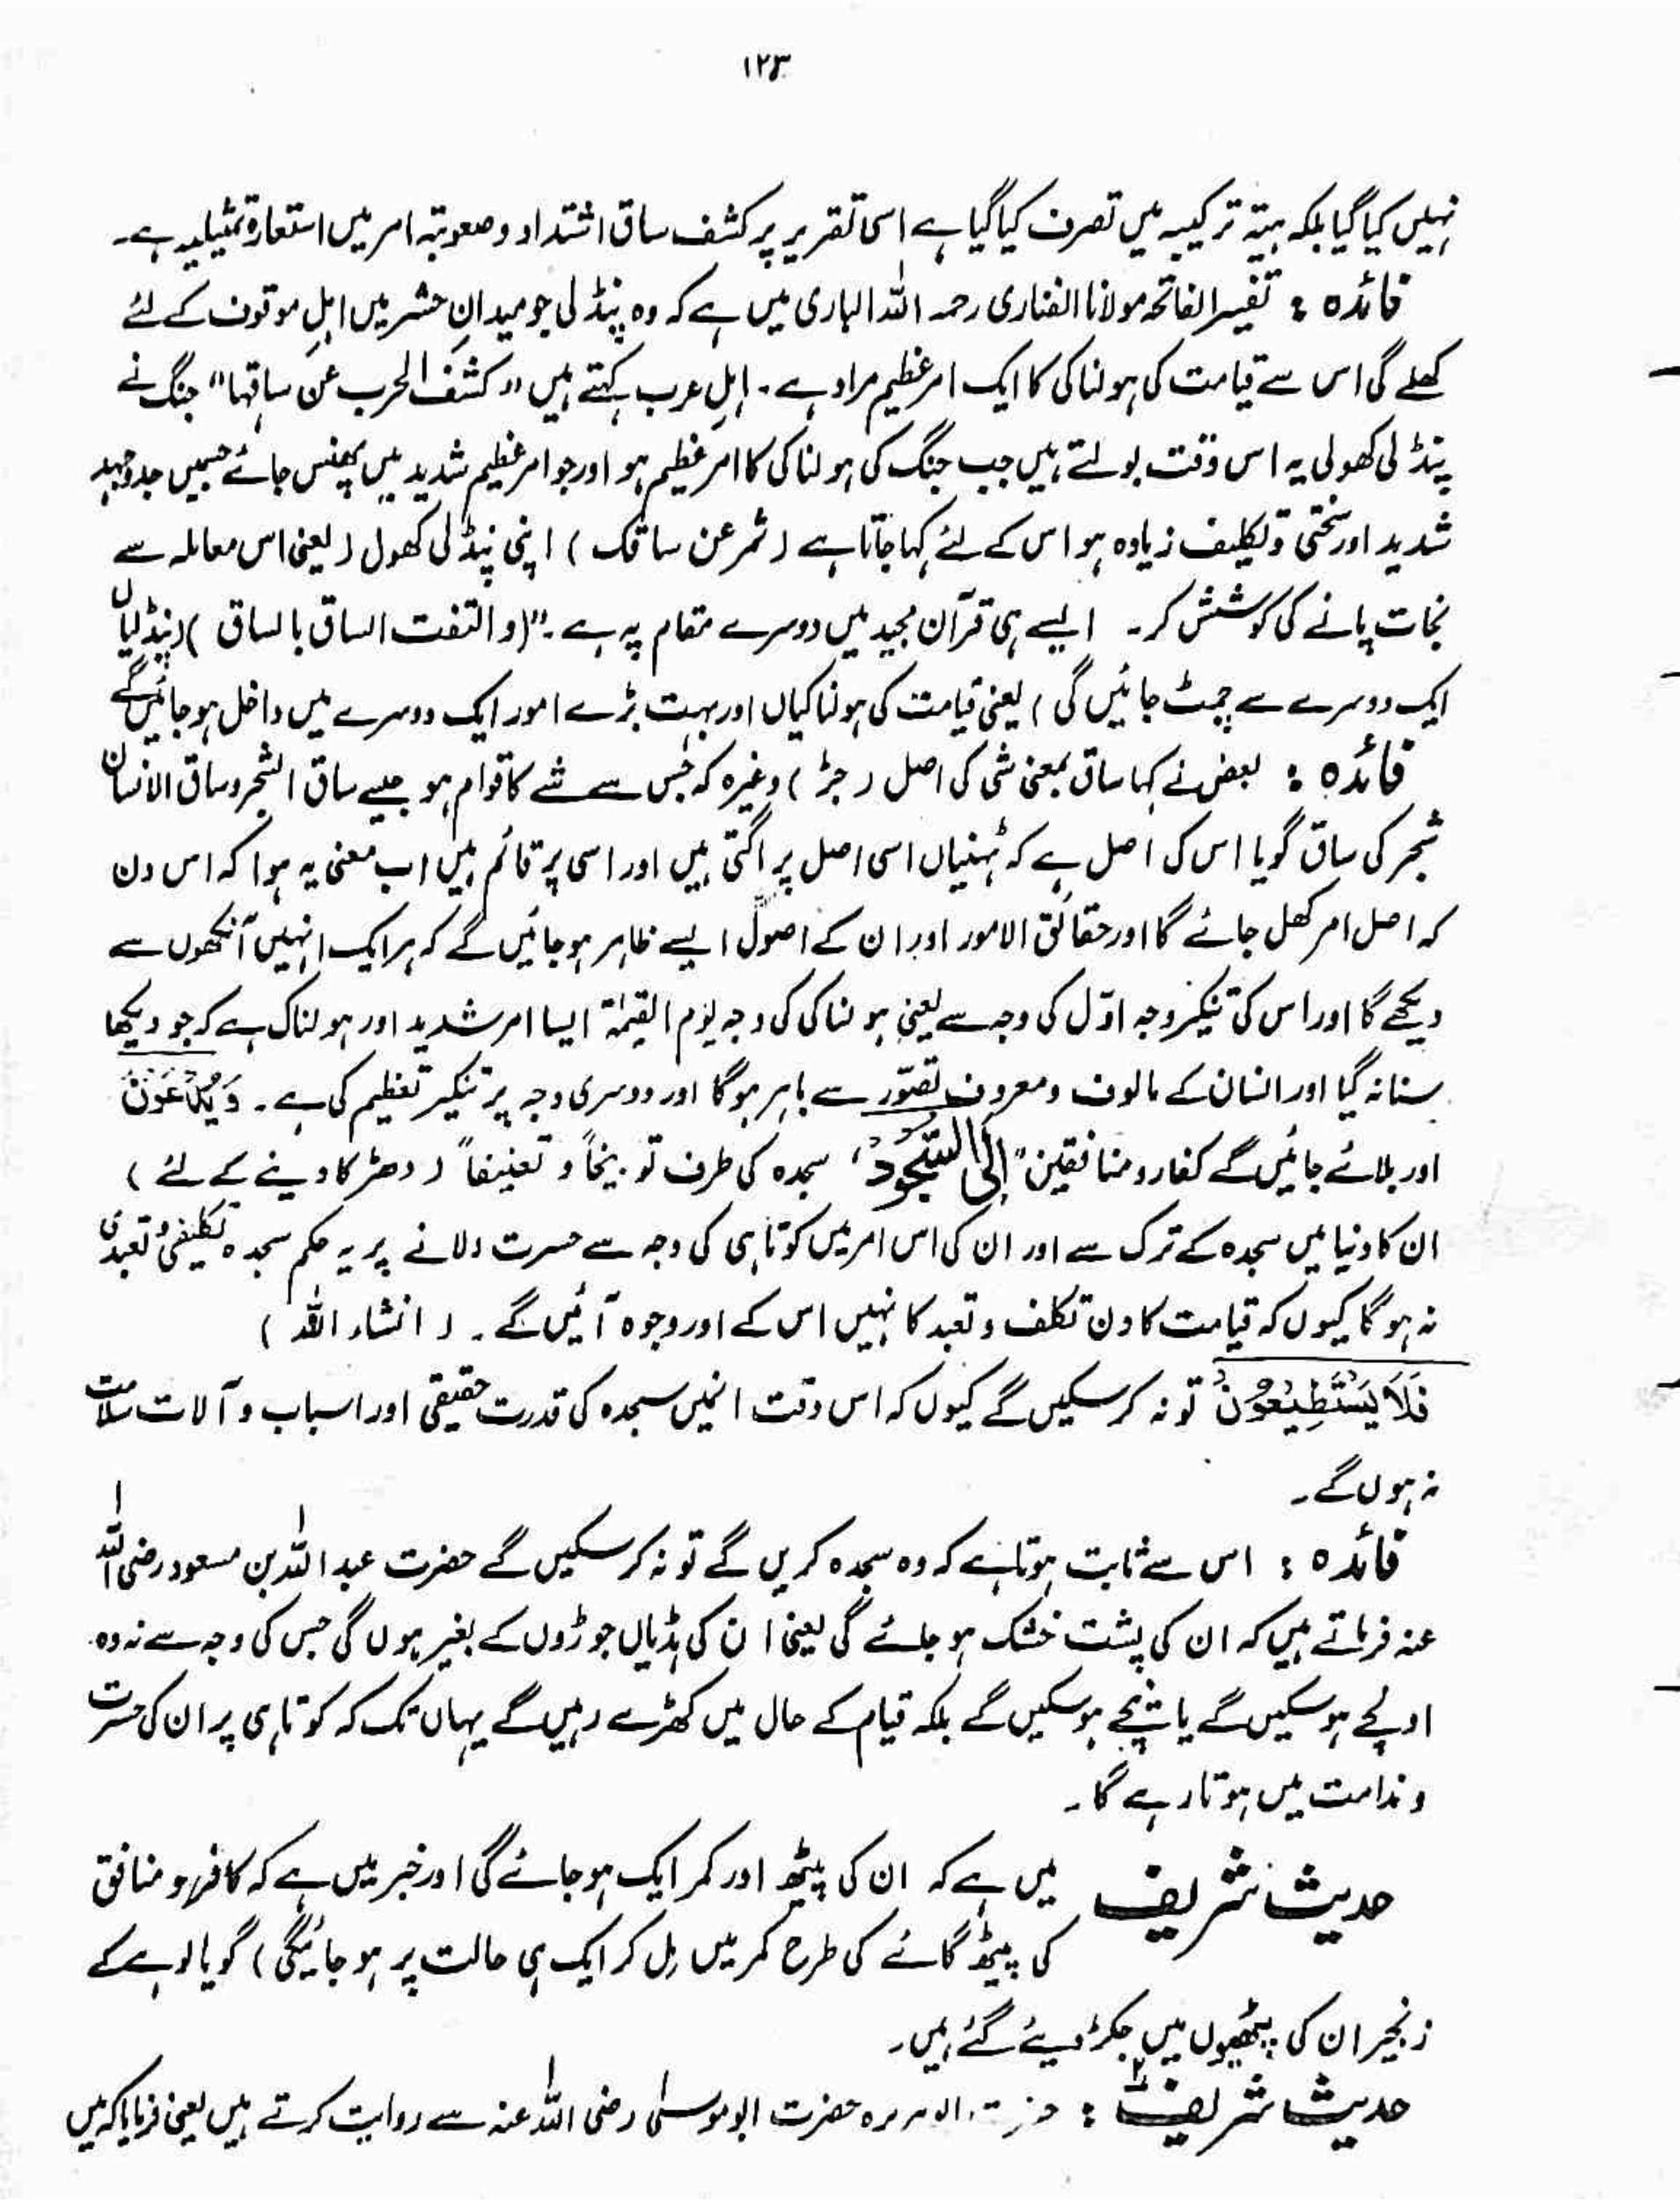 ۱۲۳
نہیں کیا گیا بلکہ ہیتہ ترکیبیہ میں تصرف کیا گیا ہے اسی تقریر پر کشف ساق اشتداد وصعوبتہ امر میں استعارۃ تمثیلیہ ہے۔
فائدہ : تفسیر الفاتحہ مولانا الفناری رحمہ اللہ الباری میں ہے کہ وہ پنڈلی جو میدانِ حشر میں اہلِ موقوف کے لئے
کھلے گی اس سے قیامت کی ہولناکی کا ایک امر عظیم مراد ہے۔ اہلِ عرب کہتے ہیں "کشف الحرب عن ساقہا" جنگ نے
پنڈلی کھولی یہ اس وقت بولتے ہیں جب جنگ کی ہولناکی کا امر عظیم ہو اور جو امر عظیم شدید میں پھنس جائے جسمیں جدوجہد
شدید اور سختی وتکلیف زیادہ ہو اس کے لئے کہا جاتا ہے (شمر عن ساقک) اپنی پنڈلی کھول (یعنی اس معاملہ سے
نجات پانے کی کوشش کر۔ ایسے ہی قرآن مجید میں دوسرے مقام پہ ہے۔"(والتفت الساق بالساق)(پنڈلیاں
ایک دوسرے سے چمٹ جائیں گی) یعنی قیامت کی ہولناکیاں اور بہت بڑے امور ایک دوسرے میں داخل ہوجائیں گے
فائدہ : بعض نے کہا ساق بمعنی شی کی اصل (جڑ) وغیرہ کہ جس سے شے کا قوام ہو جیسے ساق الشجر وساق الانسان
شجر کی ساق گویا اس کی اصل ہے کہ ٹہنیاں اسی اصل پر اگتی ہیں اور اسی پر قائم ہیں اب معنی یہ ہوا کہ اس دن
کہ اصل امر کھل جائے گا اور حقائق الامور اور ان کے اصول ایسے ظاہر ہوجائیں گے کہ ہر ایک انہیں آنکھوں سے
دیکھے گا اور اس کی تنکیر وجہ اوّل کی وجہ سے یعنی ہولناکی کی وجہ یوم القیمٰۃ ایسا امر شدید اور ہولناک ہے کہ جو دیکھا
سنا نہ گیا اور انسان کے مالوف ومعروف تصوّر سے باہر ہوگا اور دوسری وجہ پر تنکیر تعظیم کی ہے۔ وَیُدْعَوْنَ
اور بلائے جائیں گے کفار ومنافقین "اِلَی السُّجُوْدِ" سجدہ کی طرف توبیخاً و تعنیفاً (دھڑکا دینے کے لئے)
ان کا دنیا میں سجدہ کے ترک سے اور ان کی اس امر میں کوتاہی کی وجہ سے حسرت دلانے پر یہ حکم سجدہ تکلیفی و تعبدی
نہ ہوگا کیوں کہ قیامت کا دن تکلف وتعبد کا نہیں اس کے اور وجوہ آئیں گے۔ (انشاء اللہ)
فَلَا یَسْتَطِیْعُوْنَ تو نہ کرسکیں گے کیوں کہ اس وقت انہیں سجدہ کی قدرت حقیقی اور اسباب و آلات سلامت
نہ ہوں گے۔
فائدہ : اس سے ثابت ہوتا ہے کہ وہ سجدہ کریں گے تو نہ کرسکیں گے حضرت عبداللہ بن مسعود رضی اللہ
عنہ فرماتے ہیں کہ ان کی پشت خشک ہوجائے گی یعنی ان کی ہڈیاں جوڑوں کے بغیر ہوں گی جس کی وجہ سے نہ وہ
اونچے ہوسکیں گے یا نیچے ہوسکیں گے بلکہ قیام کے حال میں کھڑے رہیں گے یہاں تک کہ کوتاہی پر ان کی حسرت
و ندامت میں ہوتا رہے گا۔
حدیث شریف میں ہے کہ ان کی پیٹھ اور کمر ایک ہوجائے گی اور خبر میں ہے کہ کافر و منافق
کی پیٹھ گائے کی طرح کمر میں مل کر ایک ہی حالت پر ہوجائیگی) گویا لوہے کے
زنجیر ان کی پیٹھوں میں جکڑ دیئے گئے ہیں۔
حدیث شریف ۲ : حضرت ابوہریرہ حضرت ابوموسیٰ رضی اللہ عنہ سے روایت کرتے ہیں یعنی فرمایا کہ میں